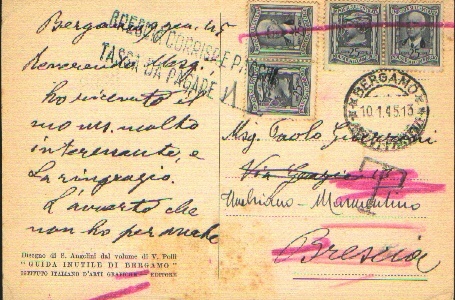 Bergamo 9 gen. '45
Reverendo Mons.
ho ricevuto il
molto
interessante, e
La ringrazio.
L'avverto che
non ho per anche
Disegno di S. Angolini dal volume di V. Polli
"GUIDA INUTILE DI BERGAMO"
ISTITUTO ITALIANO D'ARTI GRAFICHE - EDITORE
CORRISP
TASSA DA PAGARE
25
25
BERGAMO
10.1.45.13
T
Msg. Paolo Guerrini
Via Grazie
Marmentino
Brescia